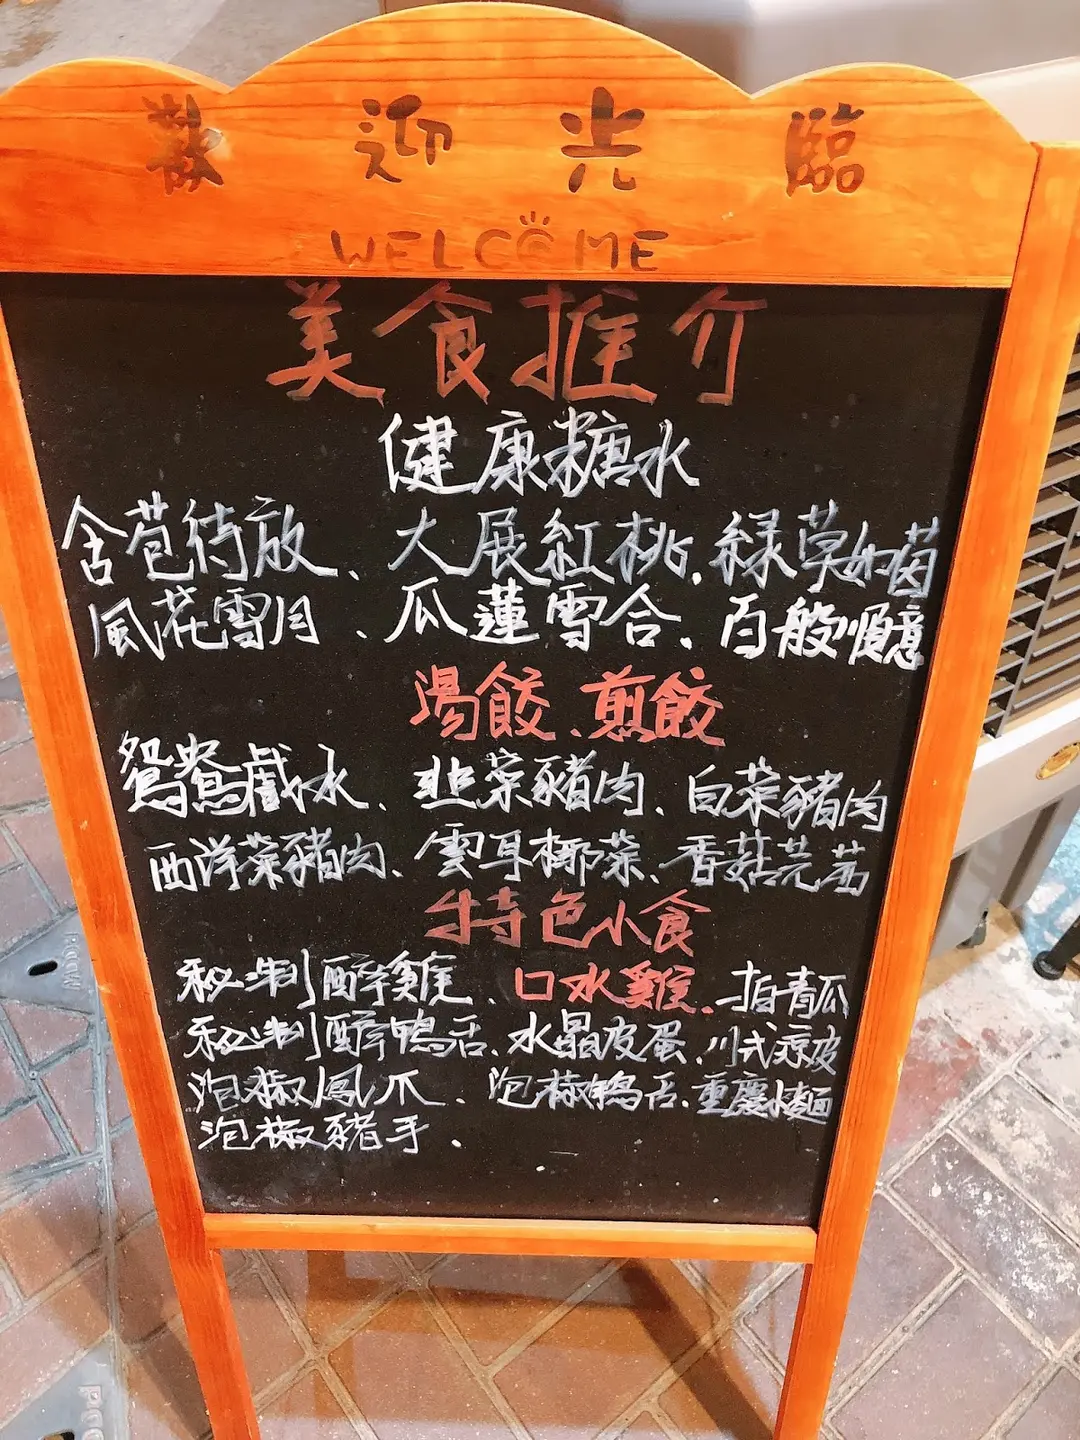 歡迎光臨
WELCOME
美食推介
健康糖水
含苞待放、大展紅桃、綠草如茵
風花雪月、瓜蓮雪合、百般順意
湯餃、煎餃
鴛鴦戲水、韭菜豬肉、白菜豬肉
西洋菜豬肉、雲耳椰菜、香菇芫茜
特色小食
秘制醉雞、口水雞、拍青瓜
秘制醉鴨舌、水晶皮蛋、川式涼皮
泡椒鳳爪、泡椒鴨舌、重慶小麵
泡椒豬手、